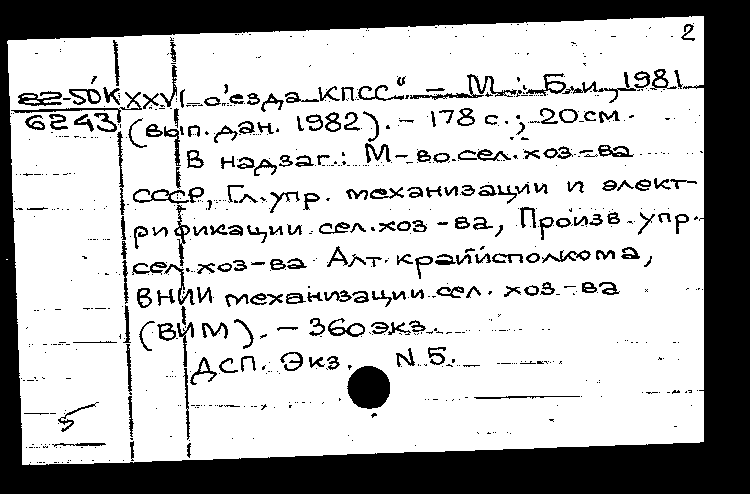 2
82-50К XXVI съезда КПСС" – М.: Б.и, 1981
6243 (вып.дан. 1982). – 178 с.; 20 см.
В надзаг.: М-во сел.хоз-ва
СССР, Гл.упр. механизации и элект-
рификации сел.хоз-ва, Произв.упр.
сел.хоз-ва Алт.крайисполкома,
ВНИИ механизации сел. хоз-ва
(ВИМ). – 360 экз.
ДСП. Экз. N 5.
5